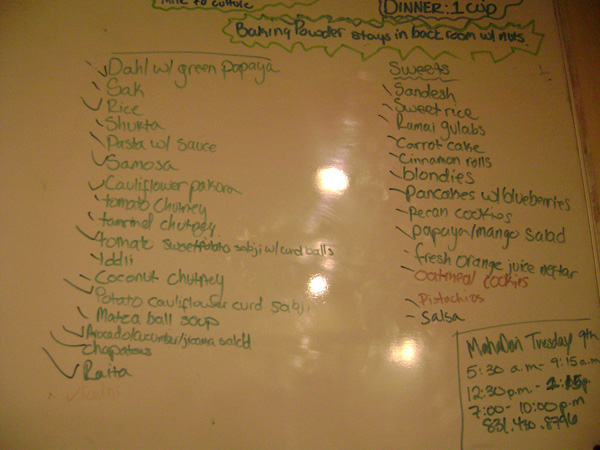 Milk to culture
DINNER: 1 cup
Baking Powder stays in back room w/ nuts
Dahl w/ green papaya
Sak
Rice
Shukta
Pasta w/ sauce
Samosa
Cauliflower pakora
tomato chutney
tamrind chutney
tomato sweetpotato sabji w/ curd balls
Iddli
Coconut chutney
Potato cauliflower curd sabji
Matza ball soup
Avocado/cucumber/jicama salad
chapatous
Raita
Sweets
Sandesh
Sweet rice
Ramai gulabs
Carrot cake
Cinnamon rolls
blondies
Pancakes w/ blueberries
pecan cookies
papaya/mango salad
fresh orange juice nectar
Oatmeal cookies
Pistachios
Salsa
MahaDan Tuesday 9th
5:30 a.m. - 9:15 a.m
12:30 p.m. -
7:00 - 10:00 p.m
831.430.8796